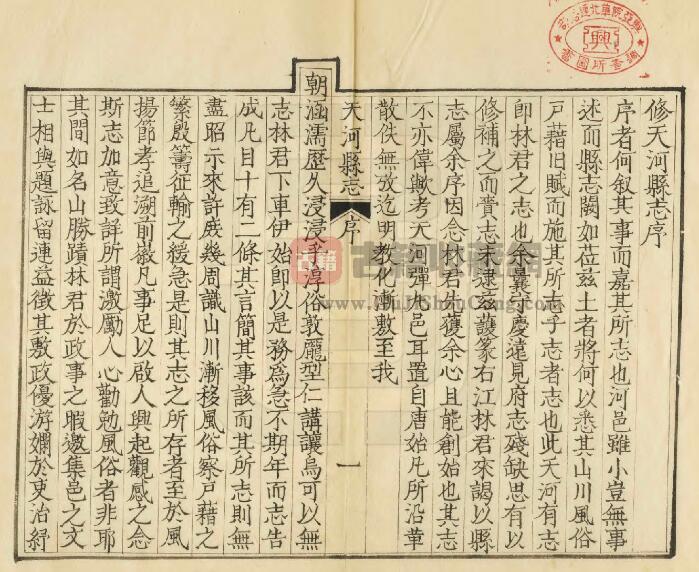 修天河縣志序
序者何叙其事而嘉其所志也河邑雖小豈無事
述而縣志闕如莅茲土者將何以悉其山川風俗
戸藉旧賦而施其所志乎志者志也此天河有志
即林君之志也余曩守慶遠見府志殘缺思有以
修補之而貴志未逮茲護篆右江林君來謁以縣
志屬余序因念林君先獲余心且能創始也其志
不亦偉歟考天河彈丸邑耳置自唐始凡所沿革
散佚無攷迄明教化漸敷至我
天河縣志 序 一
朝涵濡歷久浸浸乎淳俗敦龐型仁講讓烏可以無
志林君下車伊始即以是務為急不期年而志告
成凡目十有二條其言簡其事該而其所志則無
盡昭示來許庶幾周識山川漸移風俗察戸藉之
繁殷籌征輸之緩急是則其志之所存者至於風
揚節孝追溯前徽凡事足以啟人興起觀感之念
斯志加意致詳所謂激勵人心勸勉風俗者非耶
其間如名山勝蹟林君於政事之暇邀集邑之文
士相與題詠留連益徵其敷政優游嫻於吏治紓
古籍收藏網
www.GuJiShouCang.com